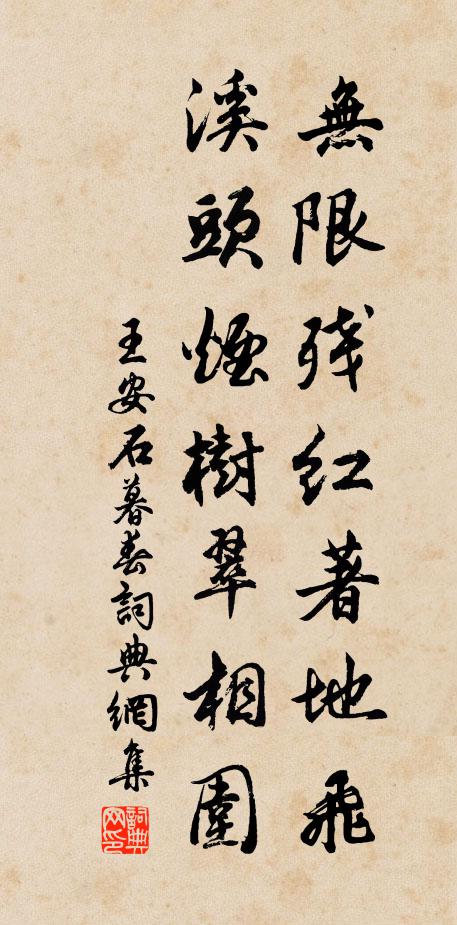 無限残紅著地飛
溪頭煙樹翠相圍
王安石暮春詞典網集
詞典网印